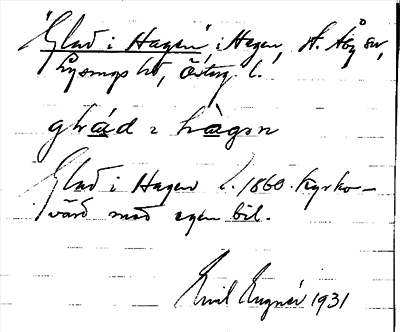 "Glad i Hagen", i Hagen, St. Åby sn,
Lysings hd, Österg. l.
glad i hàgən
Glad i Hagen l. 1860. Kyrko-
värd med egen bil.
Emil Engnér 1931